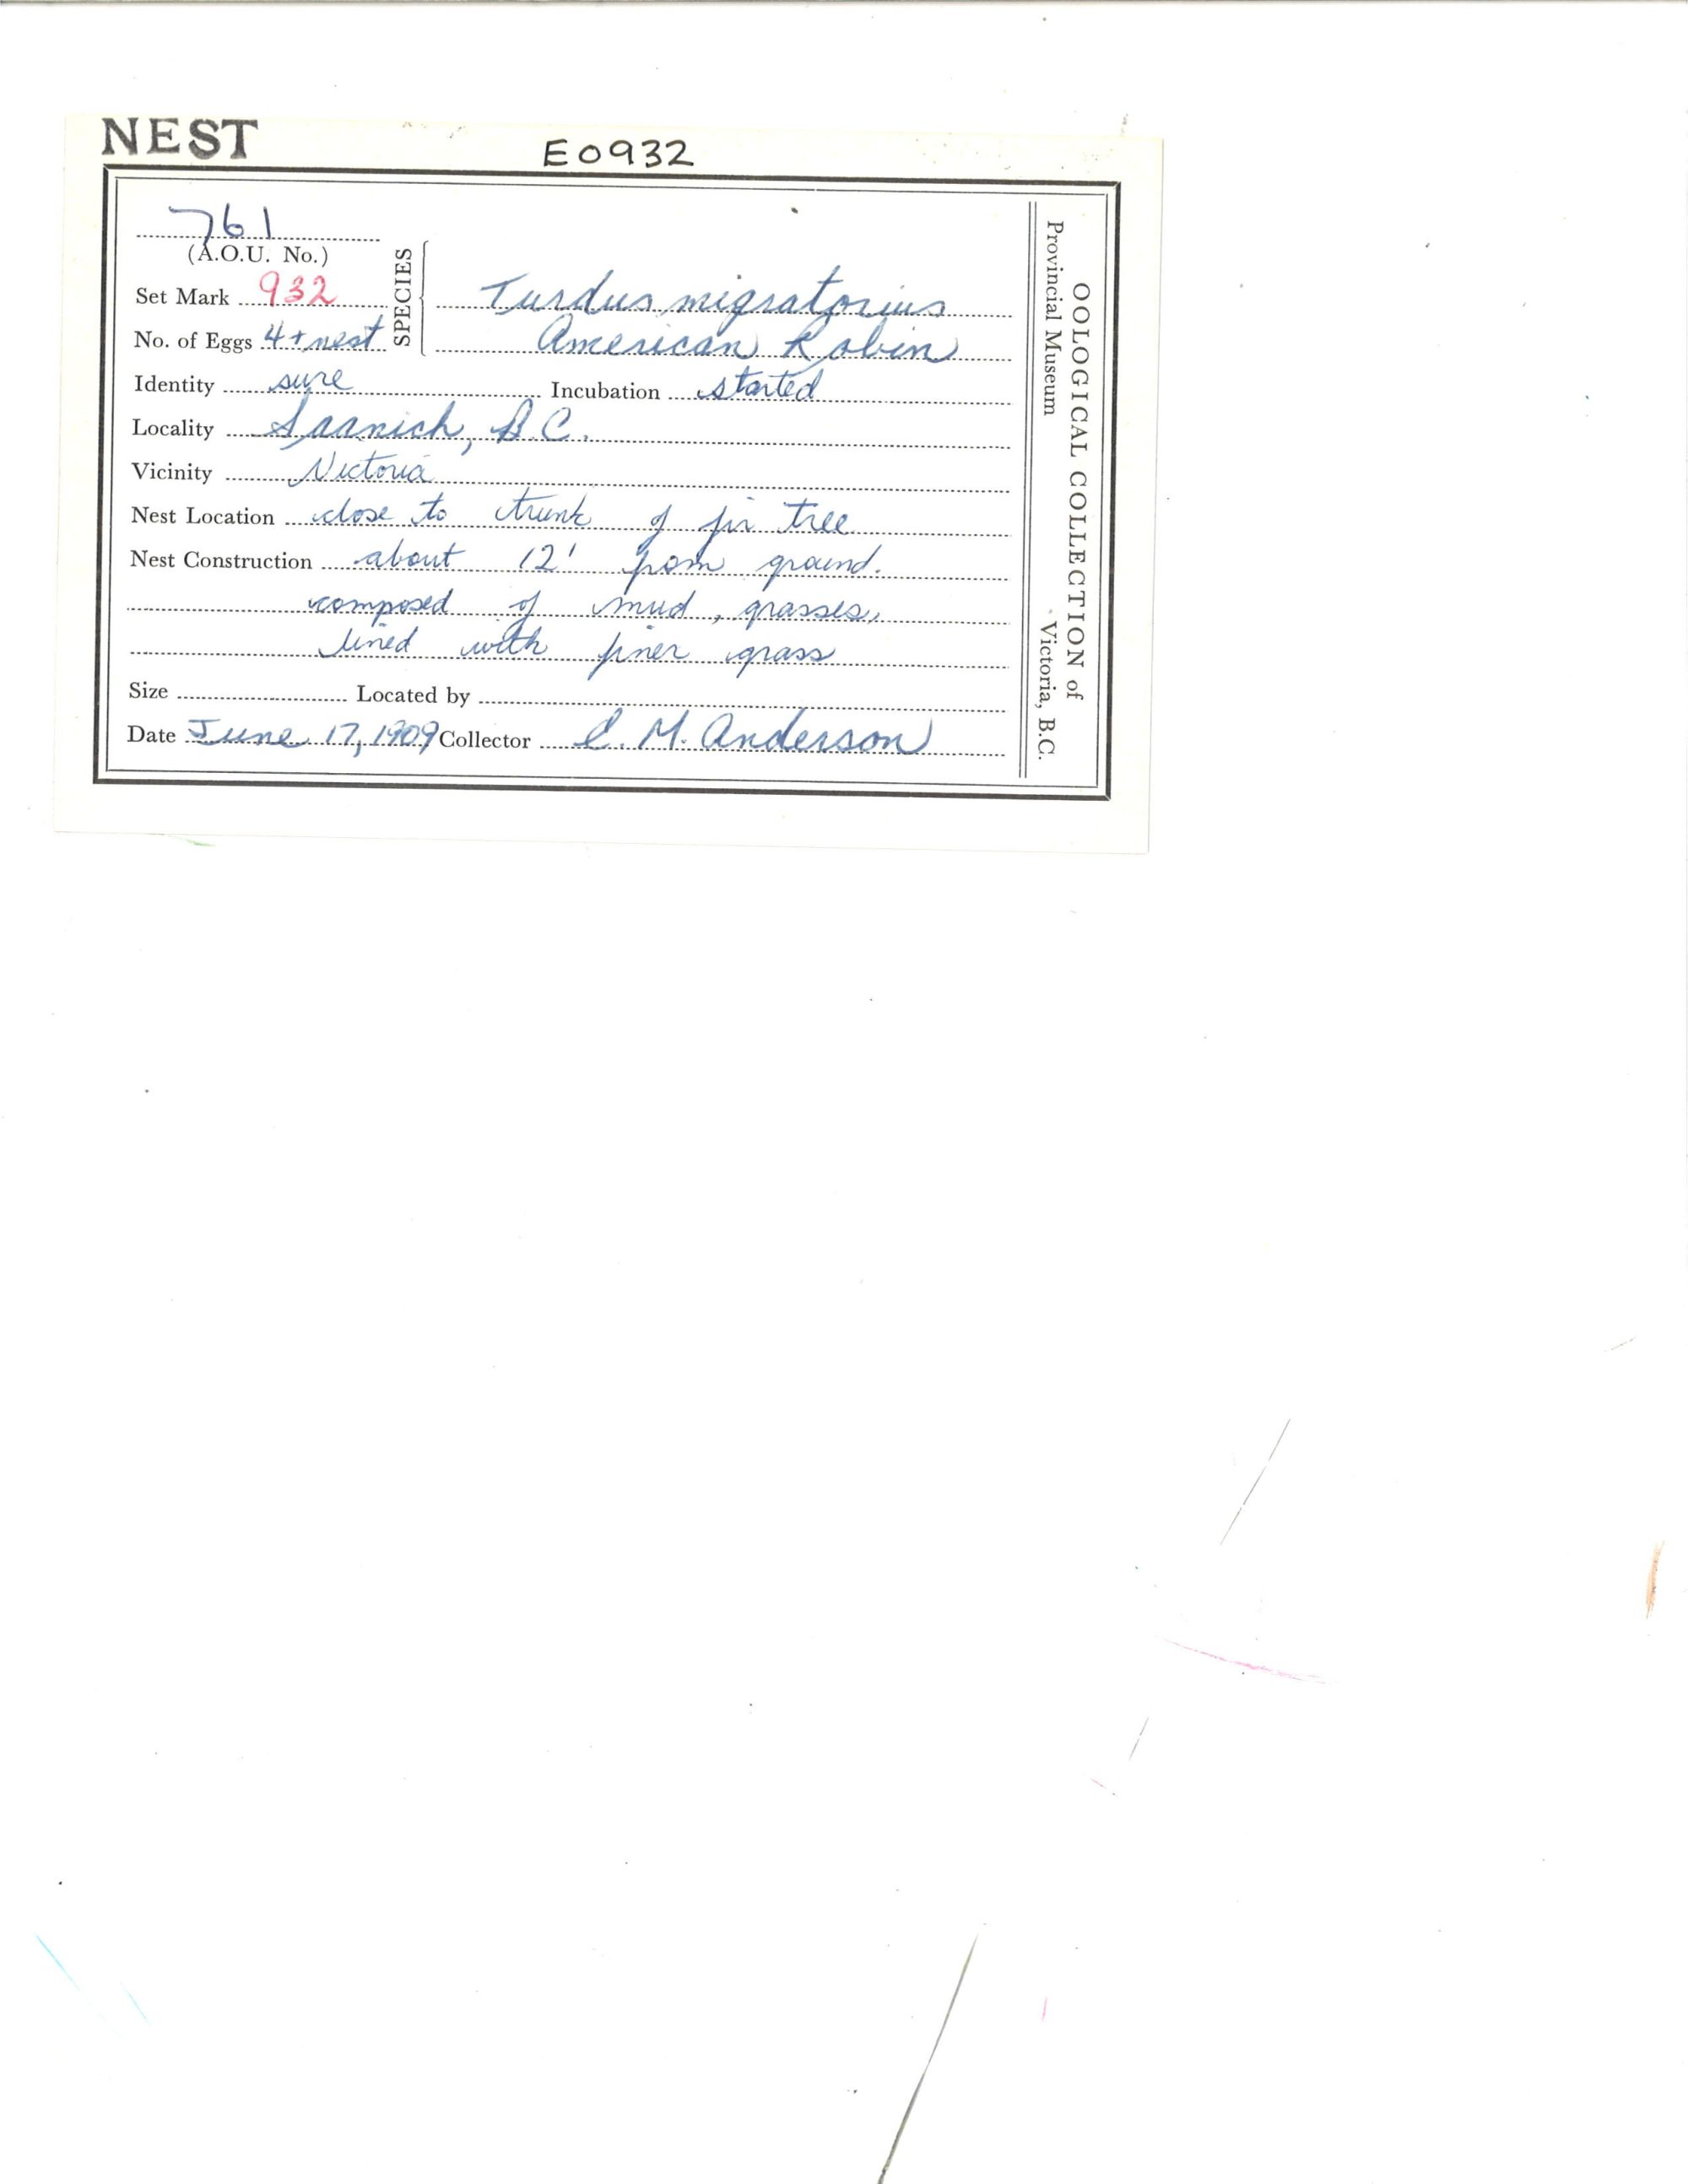 NEST
E0932
761
(A.O.U. No.)
Set Mark 932
No. of Eggs 4 + nest
SPECIES
Turdus migratorius
American Robin
Identity sure Incubation started
Locality Saanich, B.C.
Vicinity Victoria
Nest Location close to trunk of fir tree
Nest Construction about 12' from ground.
composed of mud, grasses,
lined with finer grass
Size Located by
Date June 17, 1909 Collector E. M. Anderson
OOLOGICAL COLLECTION of
Provincial Museum Victoria, B.C.